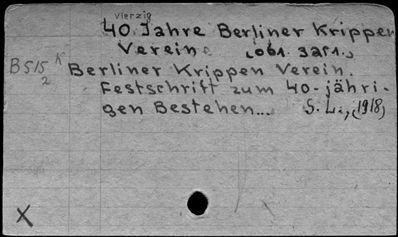 Vierzig
40 Jahre Berliner Krippen
Vereine
B515 K Berliner Krippen Verein.
2 Festschrift zum 40-jähri-
gen Bestehen... S. L., (1918)
X